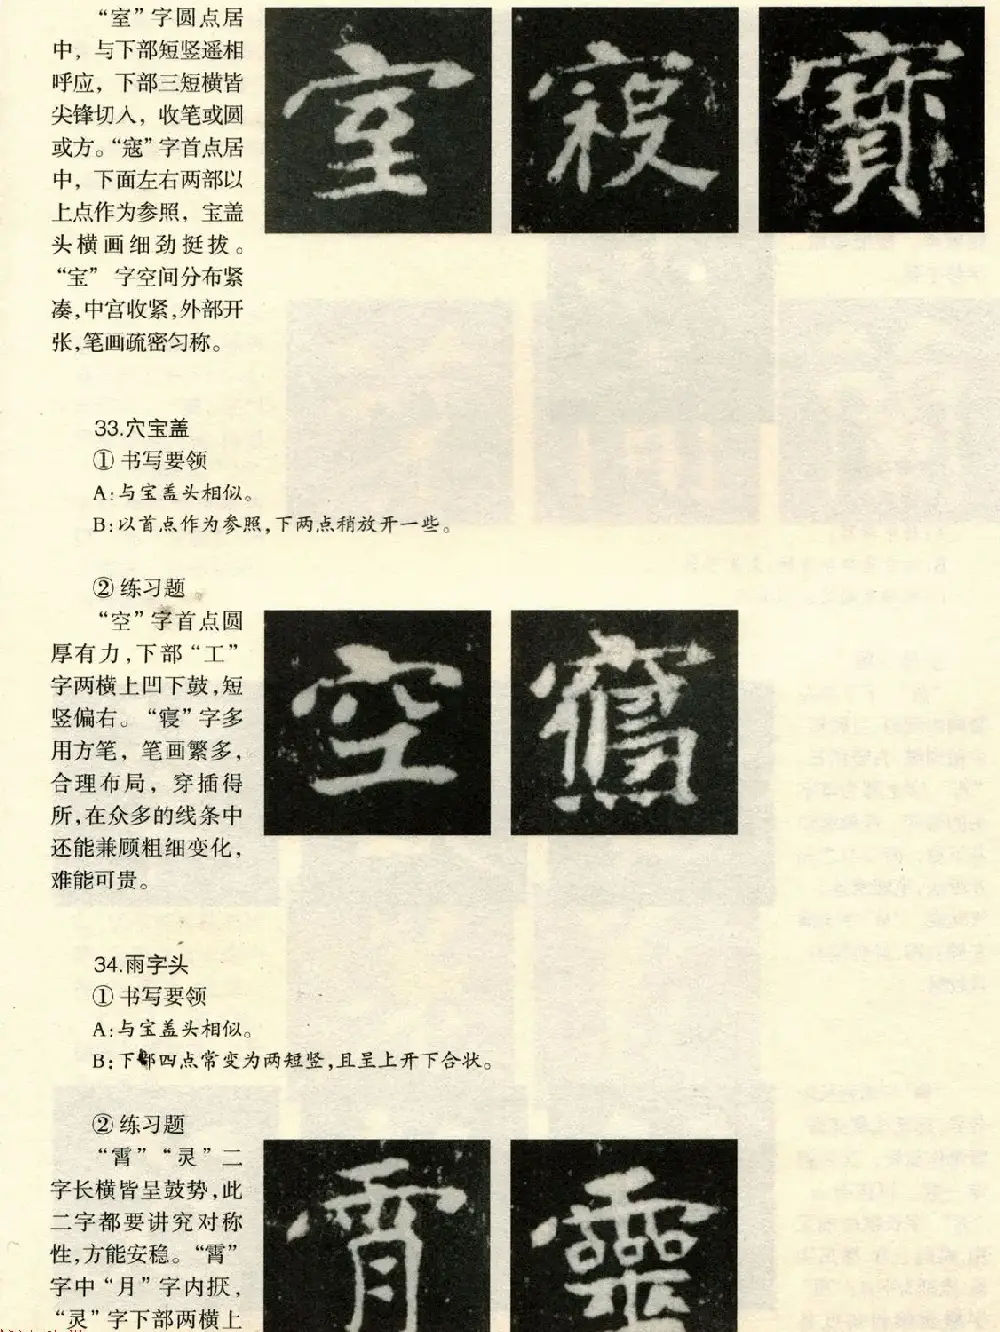 “室”字圆点居
中，与下部短竖遥相
呼应，下部三短横皆
尖锋切入，收笔或圆
或方。“寇”字首点居
中，下面左右两部以
上点作为参照，宝盖
头横画细劲挺拔。
“宝”字空间分布紧
凑，中宫收紧，外部开
张，笔画疏密匀称。
室
寶
33.穴宝盖
① 书写要领
A：与宝盖头相似。
B：以首点作为参照，下两点稍放开一些。
② 练习题
“空”字首点圆
厚有力，下部“工”
字两横上凹下鼓，短
竖偏右。“寝”字多
用方笔，笔画繁多，
合理布局，穿插得
所，在众多的线条中
还能兼顾粗细变化，
难能可贵。
空
34.雨字头
① 书写要领
A：与宝盖头相似。
B：下部四点常变为两短竖，且呈上开下合状。
② 练习题
“霄”“灵”二
字长横皆呈鼓势，此
二字都要讲究对称
性，方能安稳。“霄”
字中“月”字内抠，
“灵”字下部两横上
霄